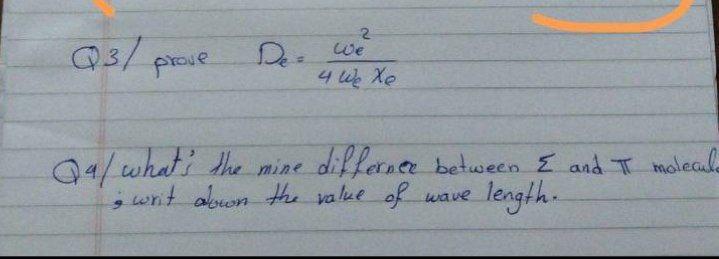 Q3/ prove De = ωe² / 4 ωe Xe
Q4/ what's the mine differnce between Σ and π molecule
; writ down the value of wave length.